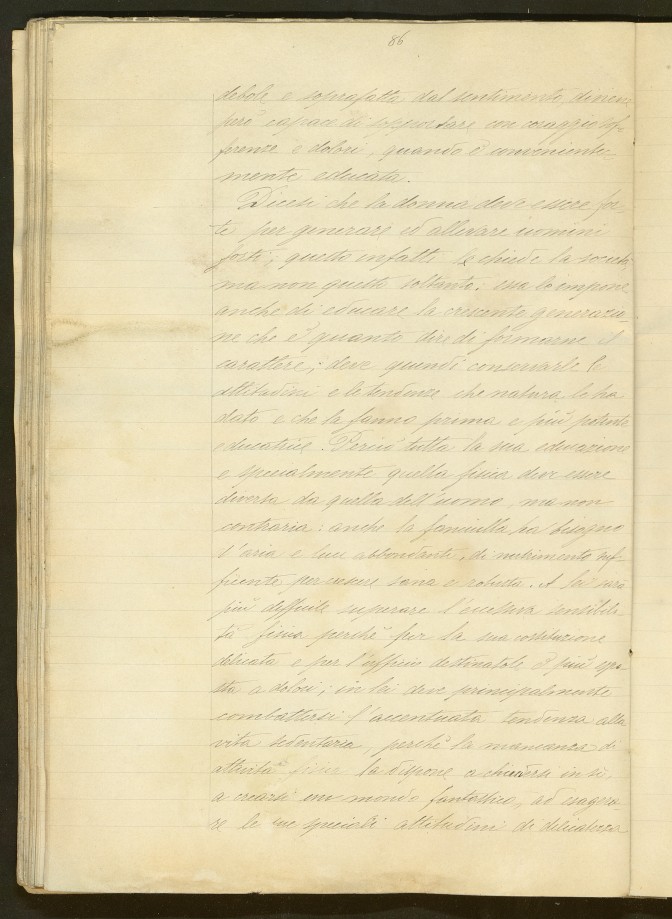 86
debole e soprafatta dal sentimento, divien
però capace di sopportare con coraggio sof-
ferenze e dolori, quando è conveniente-
mente educata.
Dicesi che la donna deve essere for-
te per generare ed allevare uomini
forti; questo infatti le chiede la società,
ma non questo soltanto: essa le impone
anche di educare la crescente generazio-
ne che è quanto dire di formarne il
carattere; deve quindi conservarle le
attitudini e le tendenze che natura le ha
dato e che la fanno prima e più potente
educatrice. Perciò tutta la sua educazione
e specialmente quella fisica deve essere
diversa da quella dell'uomo, ma non
contraria: anche la fanciulla ha bisogno
d'aria e luce abbondante, di nutrimento suf-
ficiente per essere sana e robusta. A lei sarà
più difficile superare l'eccessiva sensibili-
tà fisica perchè per la sua costituzione
delicata e per l'ufficio destinatole è più espo-
sta a dolori; in lei deve principalmente
combattersi l'accentuata tendenza alla
vita sedentaria, perchè la mancanza di
attività fisica la dispone a chiudersi in sè,
a crearsi un mondo fantastico, ad esagera-
re le sue speciali attitudini di delicatezza